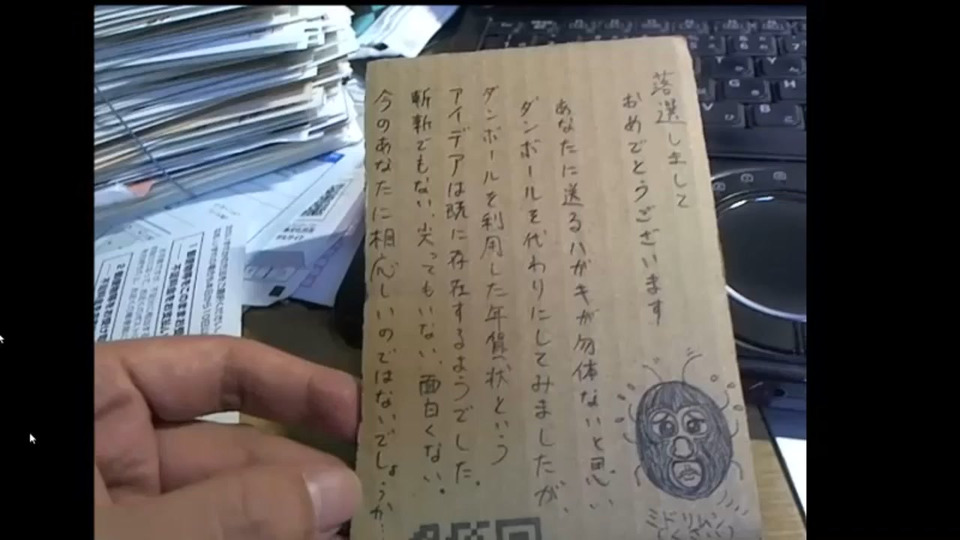 落選しまして
おめでとうございます
あなたに送るハガキが勿体ないと思い
ダンボールを代わりにしてみましたが、
ダンボールを利用した年賀状という
アイデアは既に存在するようでした。
斬新でもない、尖ってもいない、面白くない。
今のあなたに相応しいのではないでしょうか…